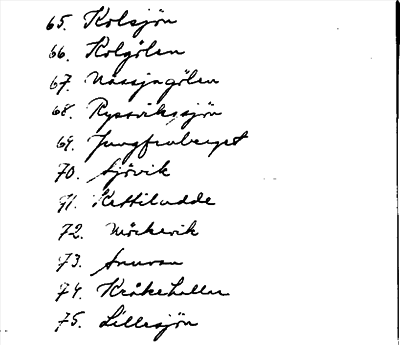 65. Kolsjön
66. Kolgölen
67. Nässjagölen
68. Ryssvikssjön
69. Jungfruberget
70. Sjövik
71. Kettiludde
72. Mörkevik
73.
74. Kråkehallen
75. Lillesjön